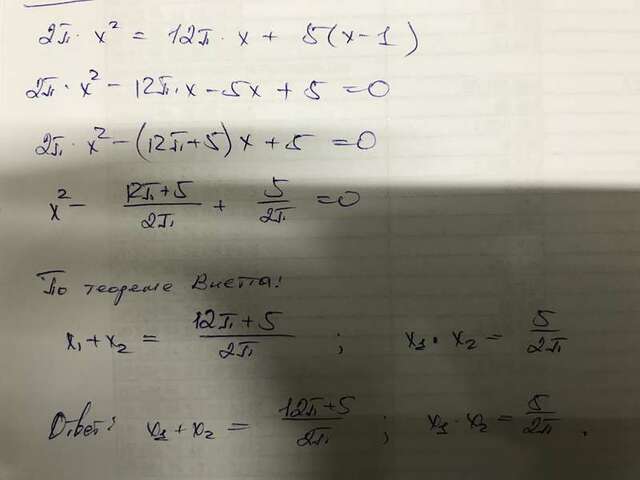 2π · x² = 12π · x + 5(x-1)
2π · x² - 12π · x - 5x + 5 = 0
2π · x² - (12π + 5)x + 5 = 0
x² - (12π + 5)/2π + 5/2π = 0
По теореме Виета:
x₁ + x₂ = (12π + 5)/2π ; x₁ · x₂ = 5/2π
Ответ: x₁ + x₂ = (12π + 5)/2π ; x₁ · x₂ = 5/2π .